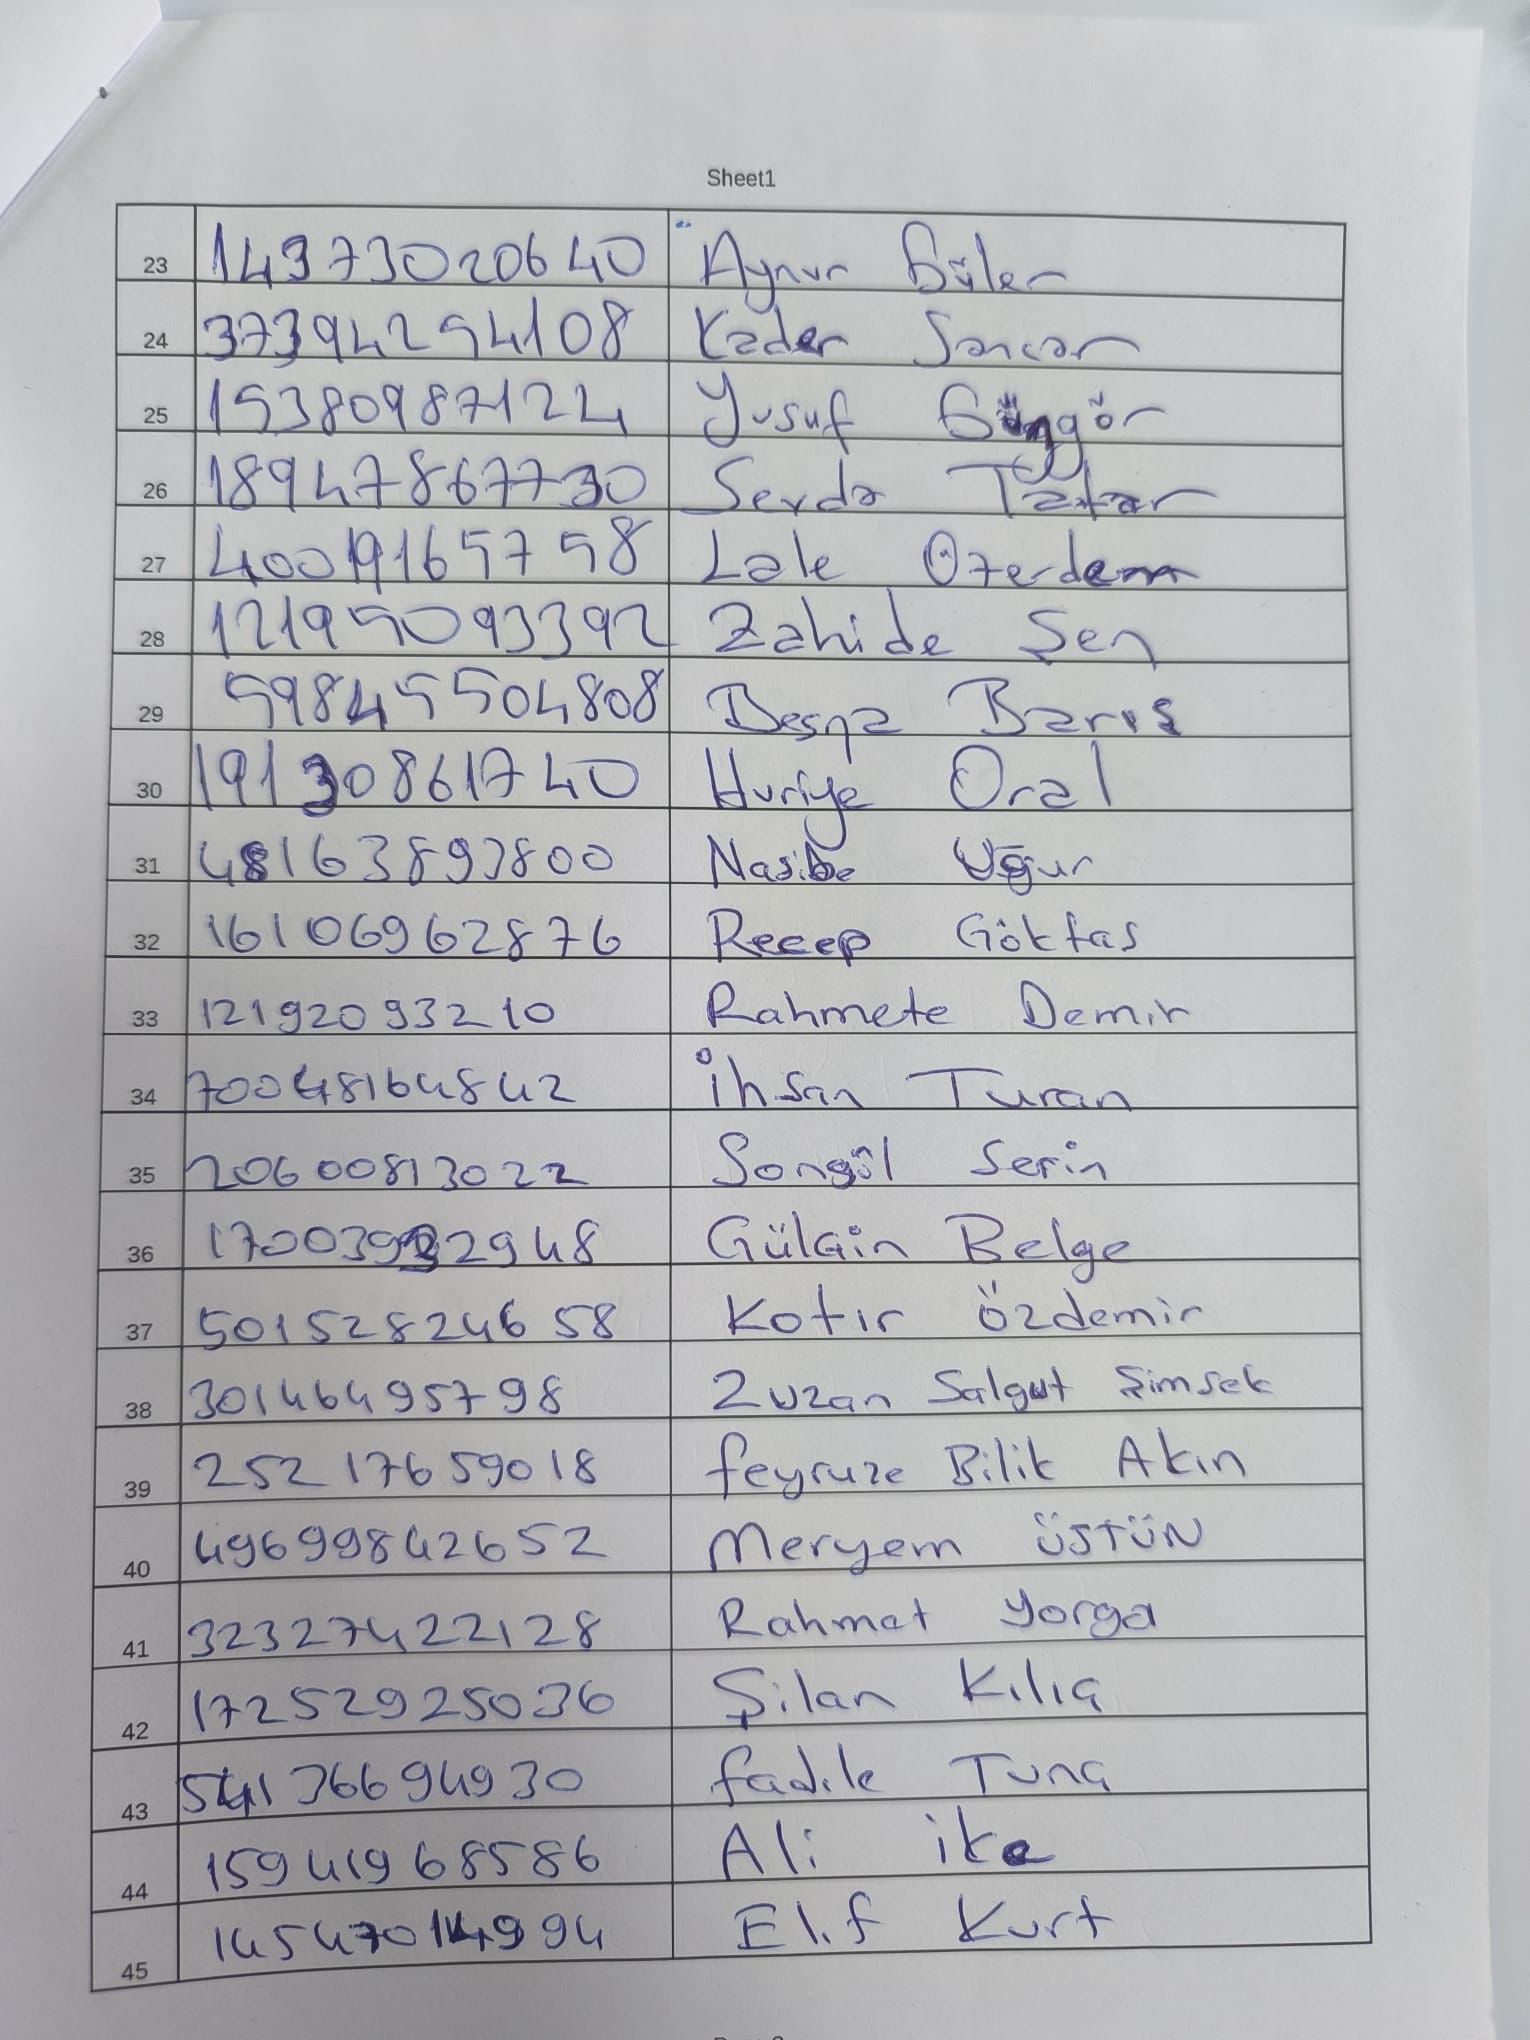 Sheet1
23 14373020640 Aynur Güler
24 37394254108 Kader Sancar
25 15380987122 Yusuf Güngör
26 18947867730 Serda Tatar
27 40019165758 Lale Özerdem
28 12195093392 Zahide Şen
29 598455504808 Besna Barış
30 19130861740 Huriye Oral
31 48163893800 Nasibe Uğur
32 16106962876 Recep Göktas
33 12192093210 Rahmete Demir
34 70048164842 İhsan Turan
35 20600813022 Songül Serin
36 Gülçin Belge
37 50152824658 Kotır Özdemir
38 30146495798 Zuzan Salgut Şimsek
39 25217659018 feyruze Bilik Akın
40 49699842652 Meryem ÜSTÜN
41 32327422128 Rahmet Yorga
42 17252925036 Şilan Kılıç
43 54136694930 fadile Tunç
44 15941968586 Ali ike
45 Elif Kurt